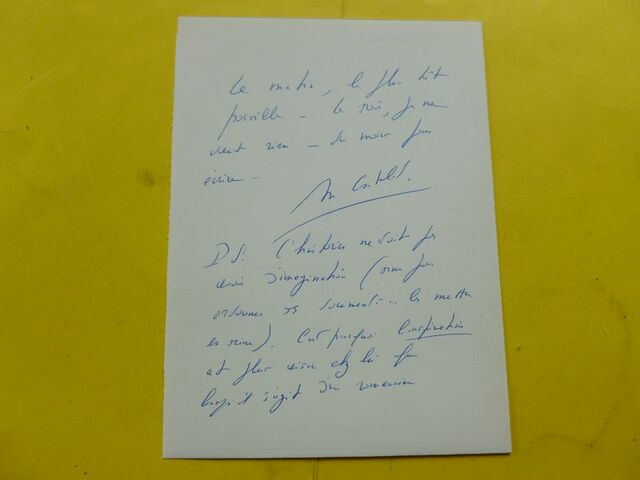 Le matin, le plus tôt
possible – le soir, je ne
vaut rien – du moins pour
écrire ...
P.S. L'historien ne doit pas
avoir d'imagination (sinon pour
ordonner ses documents ... les mettre
en scène). C'est pourquoi l'inspiration
est plus chez lui que
lorsqu'il s'agit d'un romancier